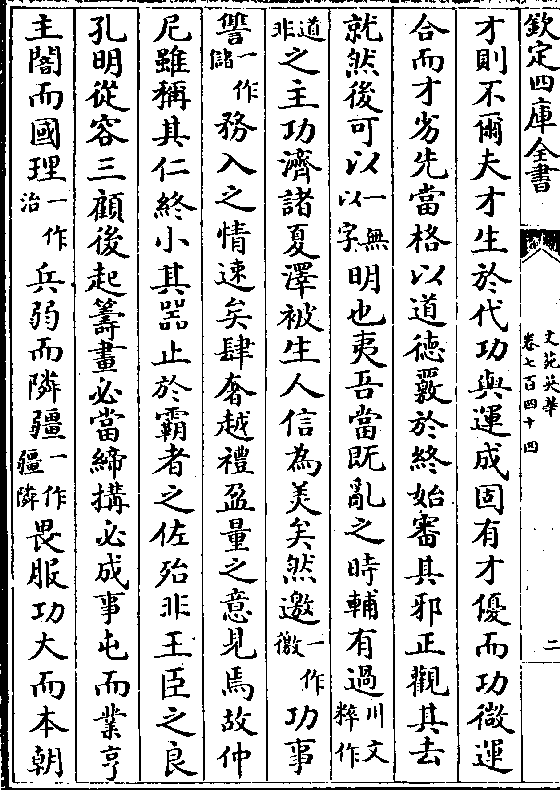 欽定四庫全書
文苑英華
卷七百四十四
二
才則不爾夫才生於代功與運成固有才優而功微運
合而才劣先當格以道德覈於終始審其邪正觀其去
就然後可以一無以字明也夷吾當既亂之時輔有過川文粹作
非道之主功濟諸夏澤被生人信為美矣然邀一作徼功事
讐一作儲務入之情速矣肆奢越禮盈量之意見焉故仲
尼雖稱其仁終小其器止於霸者之佐殆非王臣之良
孔明從容三顧後起籌畫必當締搆必成事屯而業亨
主闇而國理一作治兵弱而隣疆一作疆隣畏服功大而本朝